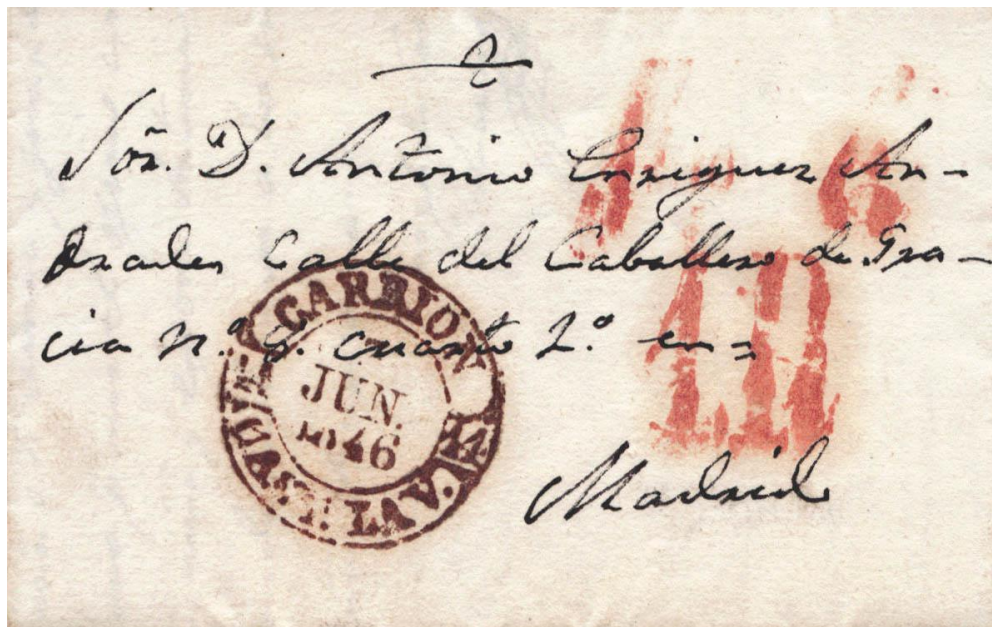 Sõr. D. Antonio Enriquez An-
drades Calle del Caballero de Gra-
cia n.º 8. cuarto 2.º en=
Madrid
CARRION
JUN.
1846